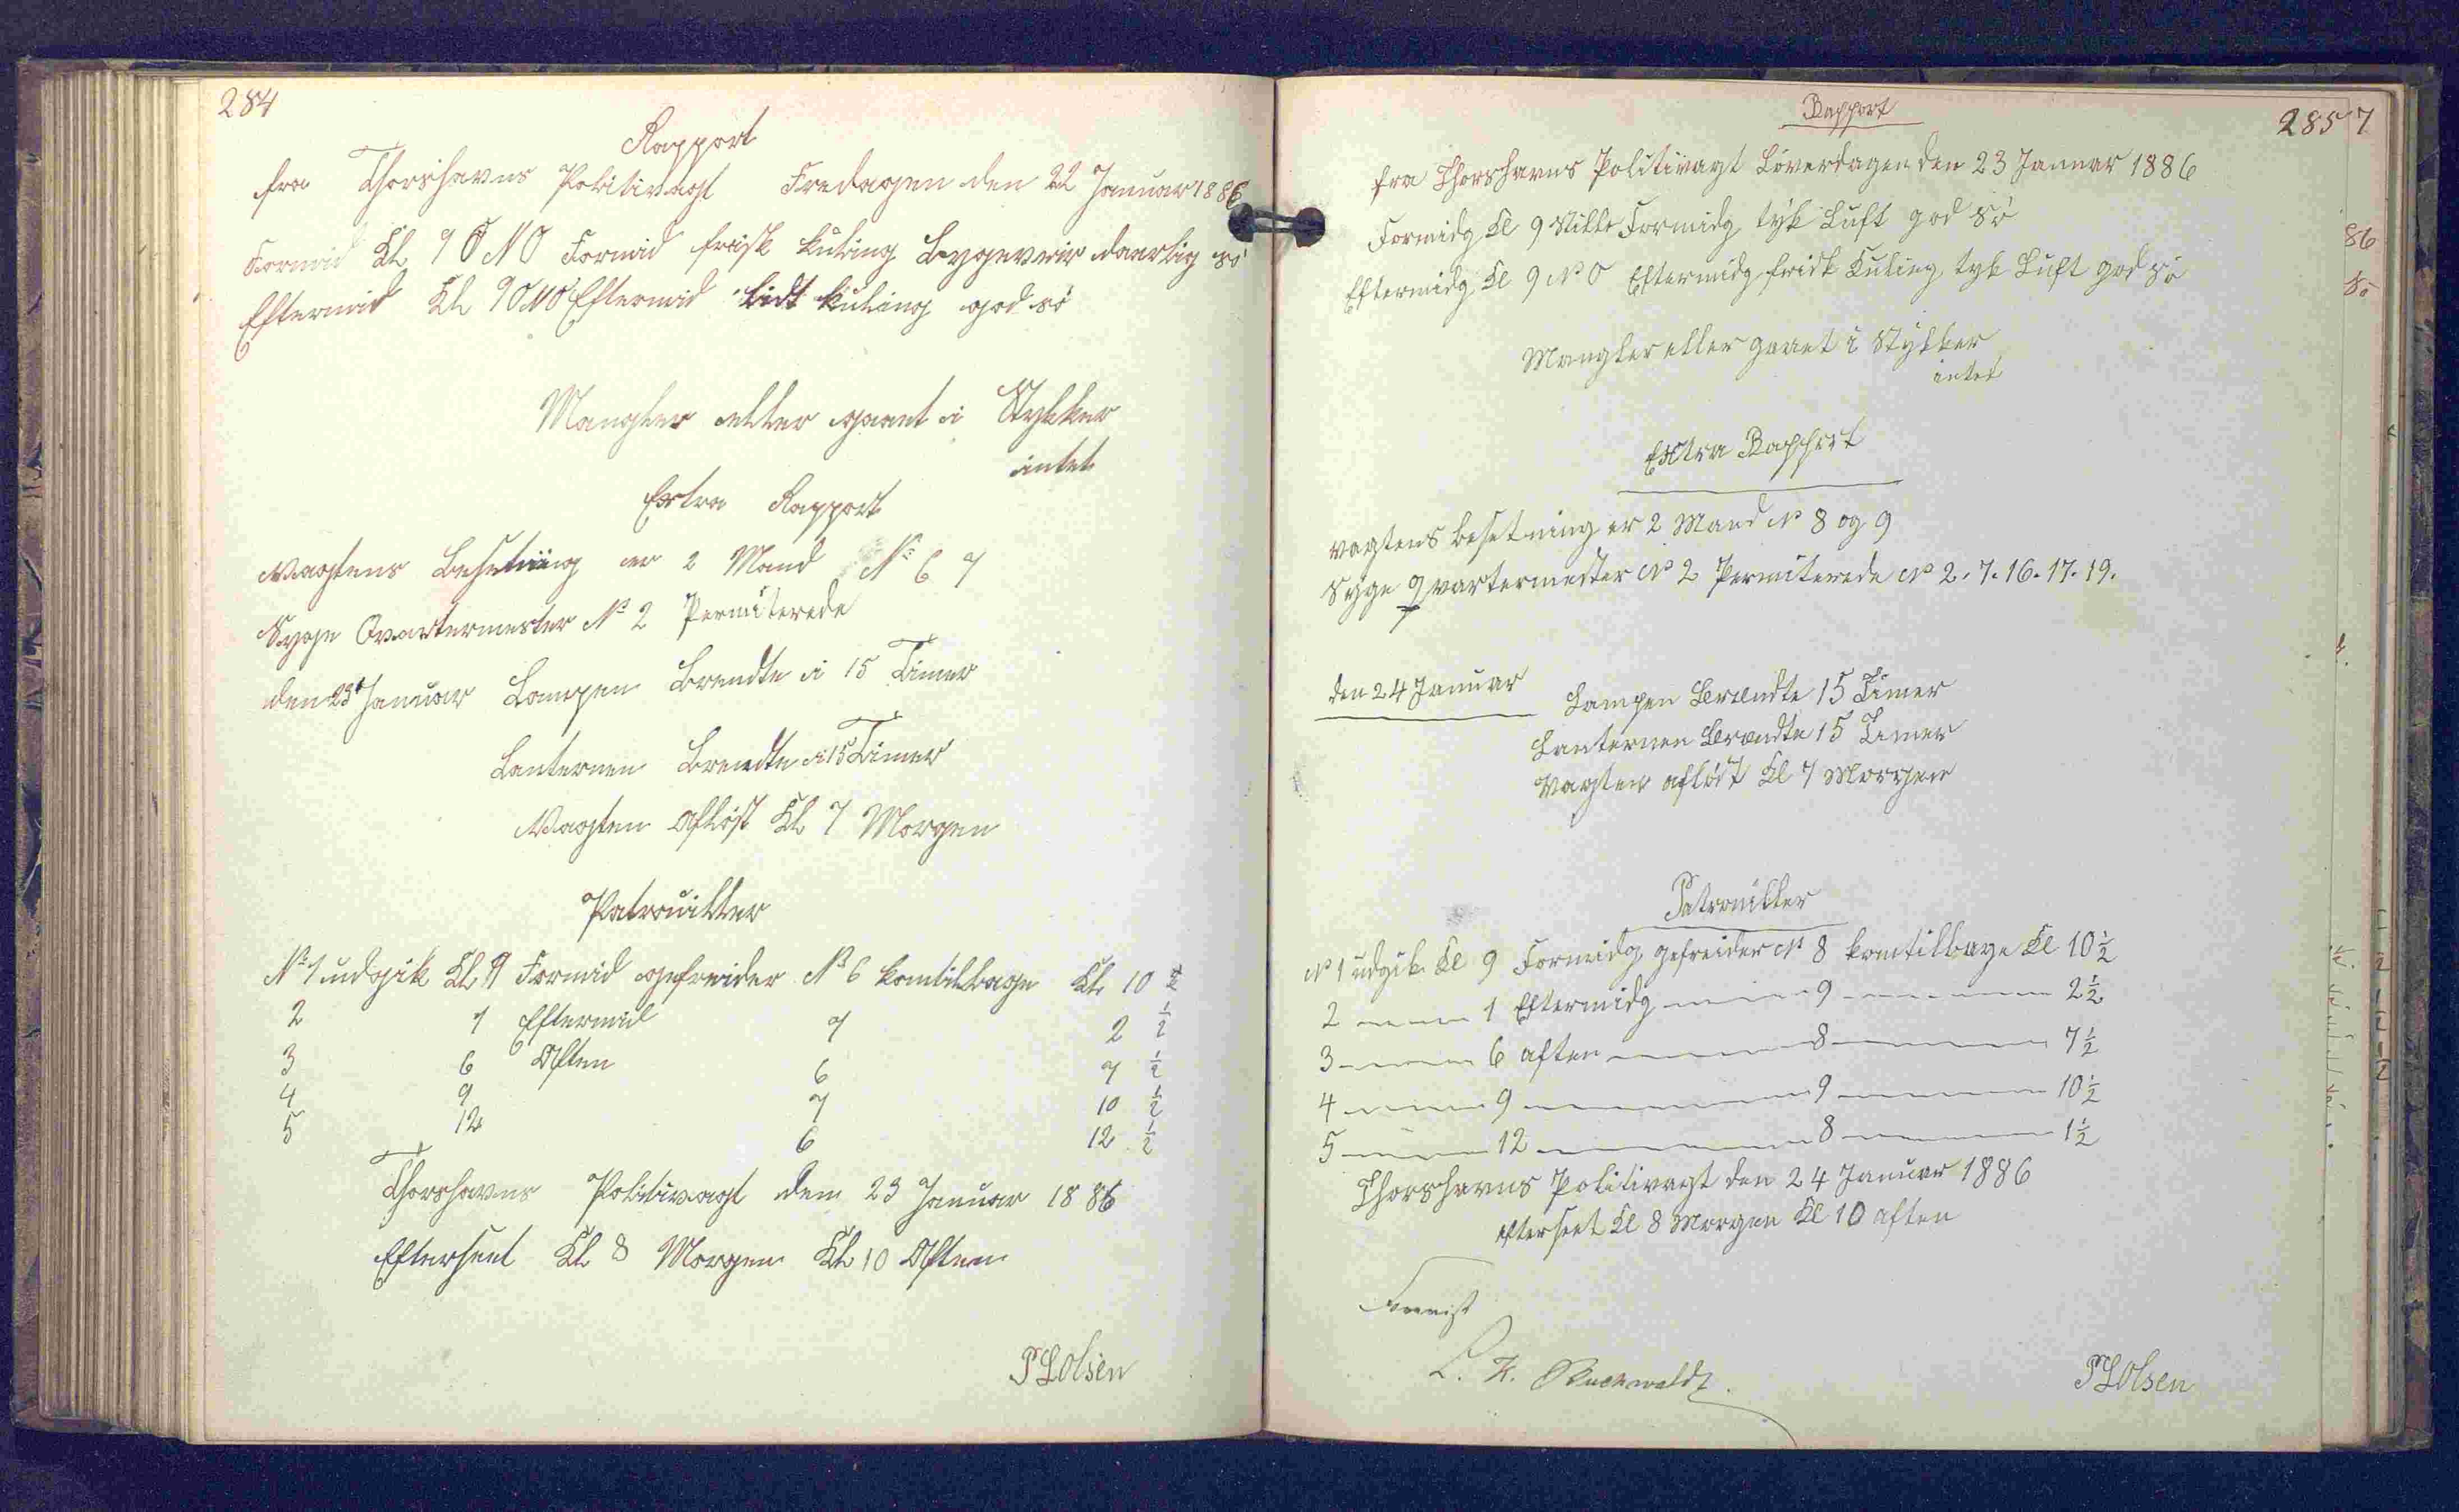 284
Rapport
fra Thorshavns Politivagt Fredagen den 22 Januar 1886
Formid Kl 9 ONO Formid frisk kuling Bygeveir daarlig sö
Eftermid Kl 9 ONO Eftermid lidt kuling god sö
Mangler eller gaaet i Stykker
intet
Extra Rapport
Vagtens Besetning er 2 Mand № 6 7
Syge Qvartermester № 2 Permiterede
den 23 Januar Lampen Brendte i 15 Timer
Lanternen Brendte i 15 Timer
Vagten Aflöst Kl 7 Morgen
Patrouiller
№ 1 udgik Kl 9 Formid gefreider № 6 komtilbage Kl 10 ½
2 1 Eftermid 7 2 ½
3 6 Aften 6 7 ½
4 9 7 10 ½
5 12 6 12 ½
Thorshavns Politivagt den 23 Januar 1886
Efterseet Kl 8 Morgen Kl 10 Aften
P L Olsen
285
Rapport
fra Thorshavns Politivagt Löverdagen den 23 Januar 1886
Formidg Kl 9 Stille Formidg tyk Luft god sö
Eftermidg Kl 9 NO Eftermidg frisk Kuling tyk Luft god sö
Mangler eller gaaet i Stykker
intet
Extra Rapport
vagtens besetning er 2 Mand № 8 og 9
Syge Qvartermester № 2 Permiterede № 2. 7. 16. 17. 19.
den 24 Januar Lampen Brændte 15 Timer
Lanternen Brændte 15 Timer
Vagten aflöst Kl 7 Morgen
Patrouiller
№ 1 udgik Kl 9 Formidg gefreider № 8 komtilbage Kl 10 ½
2 1 Eftermidg 9 2 ½
3 6 aften 8 7 ½
4 9 9 10 ½
5 12 8 1 ½
Thorshavns Politivagt den 24 Januar 1886
efterseet Kl 8 Morgen Kl 10 aften
Forevist
P L Olsen
7
86
sö